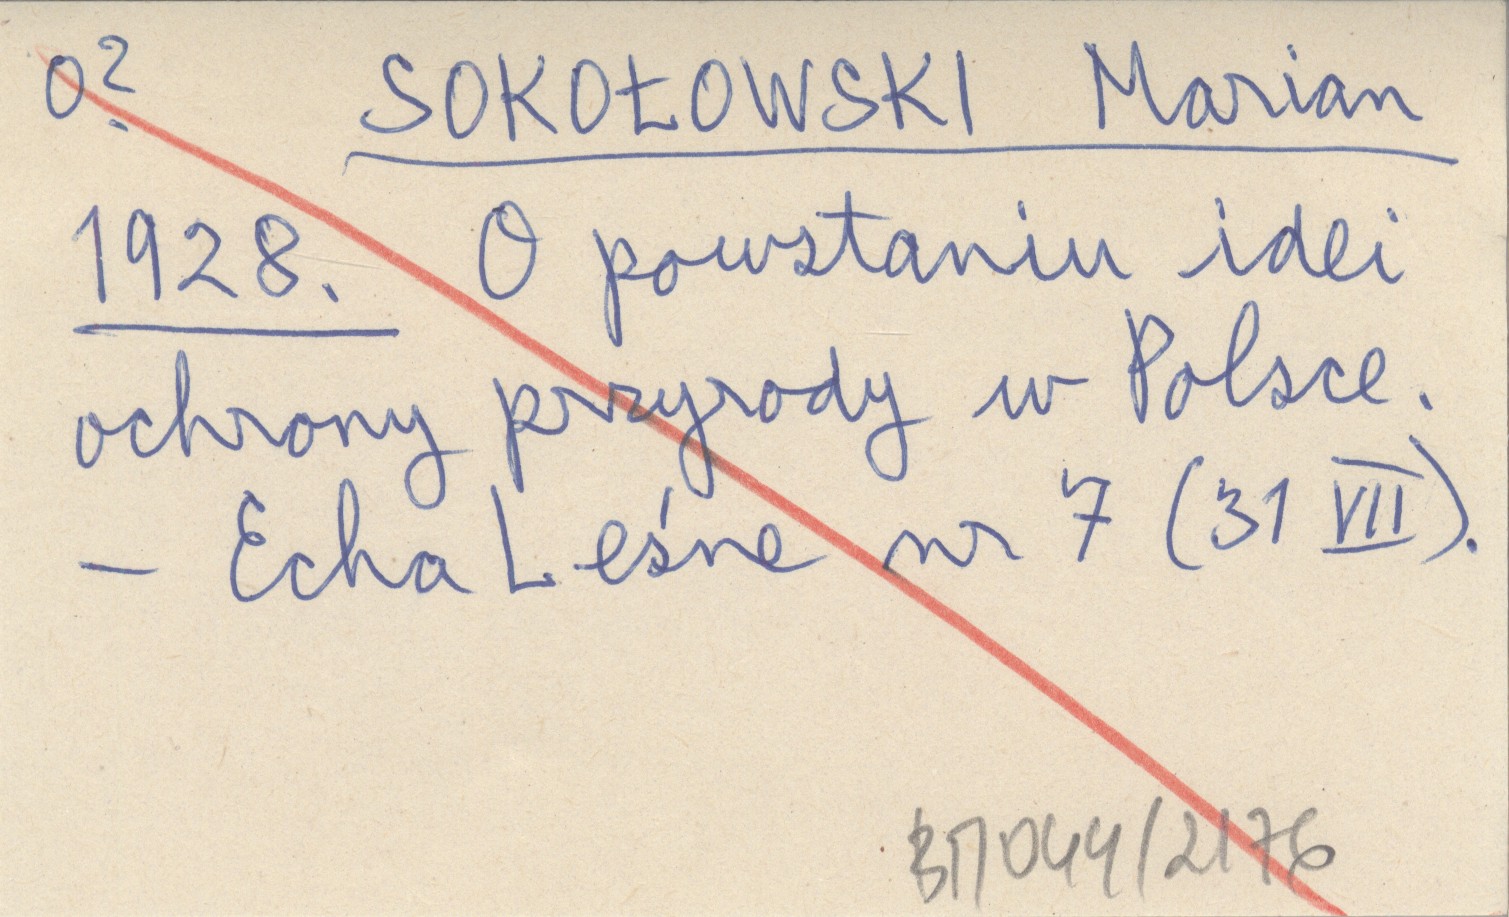 O? SOKOŁOWSKI Marian
1928. O powstaniu idei
ochrony przyrody w Polsce.
- Echa Leśne nr 7 (31 VII).
BП044/2176